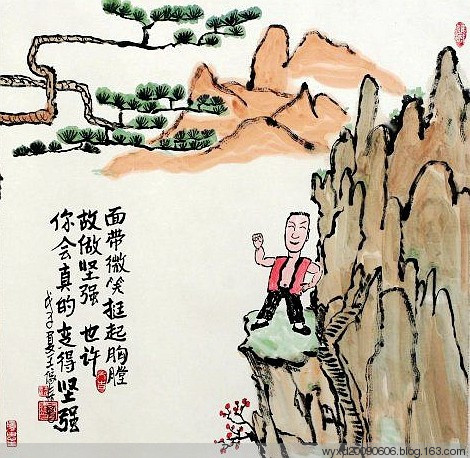 面带微笑挺起胸膛
故做坚强 也许
你会真的变得坚强
wyxd20090606.blog.163.com